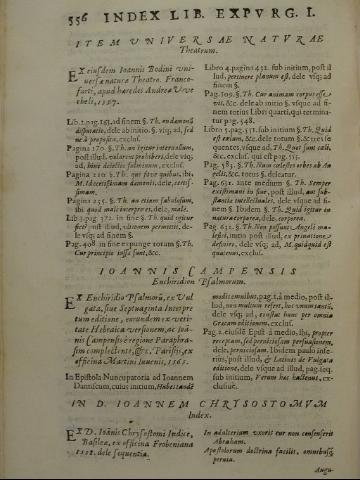 556 INDEX LIB. EXPVRG. I.
ITEM VNIVERSAE NATVRAE
Theatrum.
EX eiusdem Ioannis Bodini vni-
uersæ naturæ Theatro. Franco-
furti, apud hæredes Andreæ Ve-
cheli, 1597.
Lib. 2. pag. 151, ad finem, §. Th. an damonũ
disparitas, dele ab initio §. vsq; ad, sed
ne à proposito, exclus.
Pagina 170. §. Th. an piter interuallum,
post illud, valoris prohibere, dele vsq;
ad, hinc delictis submixtis, exclus.
Pagina 210. §. Th. qui fons quibus, ibi,
M. Id accessionum damonum, dele, certis-
simam.
Pagina 225. §. Th. an etiam subolesum,
ibi quod male interpretes, dele, male.
Lib. 3. pag. 372. in fine §. Th. quid igitur
post illud, vlterius permittit, de-
le vsq; ad finem §.
Pag. 408. in fine expunge totum §. Th.
Cur principio iussi sunt, &c.
Libro 4. pagina 432. sub initium, post il-
lud, pertinere planum est, dele vsq; ad
finem §.
Pag. 509. §. Th. Cur animam corpore
&c. dele ab initio §. vsque ad fi-
nem totius Libri quarti, qui termina-
tur pag. 548.
Libro 5. pag. 552. sub initium §. Th. Quid
est earum, &c. dele totum §. & tres se-
quentes, vsque ad, Th. Quot sunt cæli,
&c. exclus. qui est pag. 555.
Pag. 585. §. Th. Num cælestes orbes ab An-
gelis, &c. totus §. delcatur.
Pag. 631. ante medium §. Th. Semper
existimam in sine, post illud, aut sub-
stantia intellectualis, dele vsque ad fi-
nem §. Ibidem §. Th. Quid igitur in
natura corporea, dele, corporea.
Pag. 632. §. Th. Non possunt Angeli mo-
lesti, initio post illud, ex priuatione
desinere, dele vsq; ad, M. quidquid est
quatenus, exclus.
IOANNIS CAMPENSIS
Enchiridion Psalmorum.
EX Enchiridio Psalmorũ, ex Vul
gata, siue Septuaginta Interpre
tum editione, eorundemq; ex veri-
tate Hebraica versionem, ac Ioan-
nis Campensis è regione Paraphra-
sim complectente, &c. Parisijs, ex
officina Martini Iuuenis, 1565.
In Epistola Nuncupatoria ad Ioannem
Dantiscum, cuius initium,
modis omnibus, pag. 1. à medio, post il-
lud, non multum refert, hoc vnum tantũ,
dele vsq; ad, eiusdem hunc per omnia
Græcam editionem, exclus.
Pag. 2. eiusdẽ Epist. à medio, ibi, propter
receptam, sed perniciosam persuasionem,
dele, perniciosam. Ibidem paulo infe-
rius, post illud, & Latinus de Vulgata
editione, dele vsque ad illud, pag. seq.
sub initium, Verum hac hactenus, ex-
clusiuè.
IN D. IOANNEM CHRYSOSTOMVM
Index.
EX D. Ioannis Chrysostomi Indice,
Basileæ, ex officina Frobeniana
1558. dele sequentia.
In adulterium vxoris cur non consenserit
Abraham.
Apostolorum doctrina facilis, omnibusq;
peruia.
Augu-